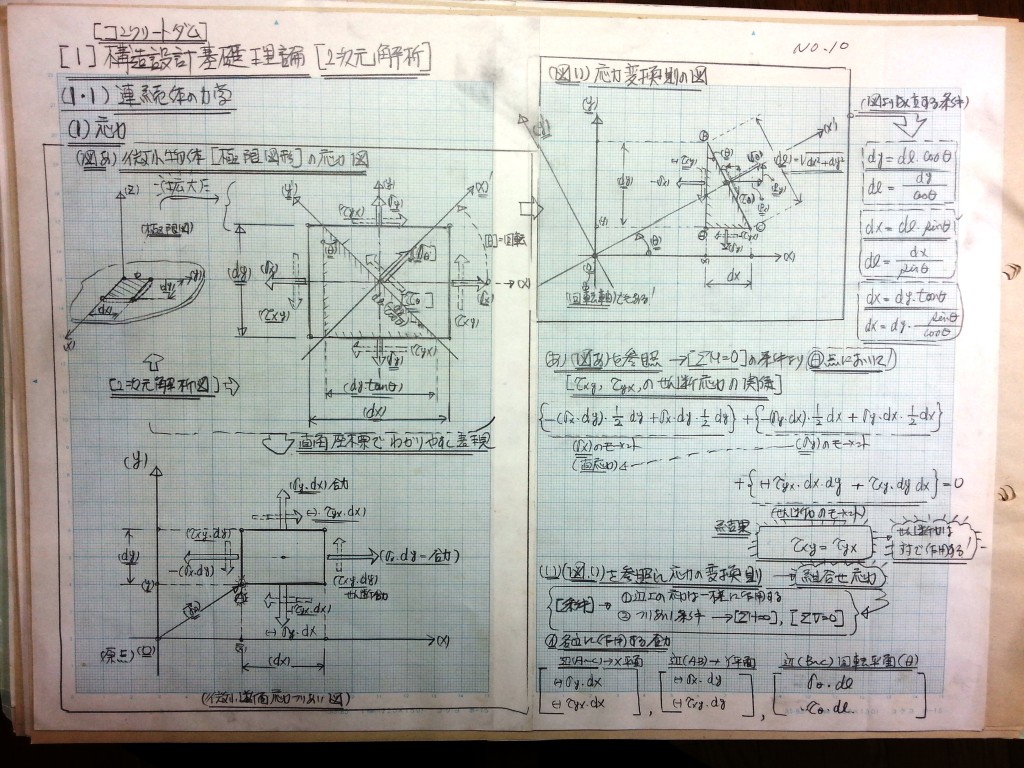 [コンクリートダム]
[1] 構造設計基礎理論 [2次元解析]
NO.10
(1・1) 連続体の力学
(1) 応力
(図あ) 微小物体 [極限図形] の応力図
(Z)
拡大
(極限図)
(dy)
(σx)
(τxy)
(τyx)
(σy)
(X')
(X)
[θ]=回転
(dy.tanθ)
(dx)
[2次元解析図]
画面座標でわかりやすく表現
(y)
(σy.dx) 合力
(-) τyx.dx)
(τxy.dy)
-(σx.dy)
(σx.dy=合力)
(τxy.dy)
せん断力
(τyx.dx)
(-) σy.dx
(dy)
(原点) (O)
(dx)
(X)
(微小平面応力つりあい図)
(図い) 応力変換則の図
(y)
(X')
(dl)=√dx²+dy²
(θ)
(X)
dx
(回転軸)でもある!
(図より成立する条件)
dy = dl.cosθ
dl = dy/cosθ
dx = dl.sinθ
dl = dx/sinθ
dx = dy.tanθ
dx = dy.sinθ/cosθ
(あ) (図あ)を参照 → [ΣM=0]の条件より 点において!
[τxy, τyx, のせん断応力の関係]
{-(σx.dy).½dy + σx.dy.½dy} + {-(σy.dx).½dx + σy.dx.½dx}
(σx)のモーメント
(σy)のモーメント
(直応力)
+ {(-) τyx.dx.dy + τxy.dy dx} = 0
(せん断力のモーメント)
結果
τxy = τyx
せん断力は
対で作用する!
(い) (図い)を参照に応力の変換則 → 組合せ応力
[条件] → ① 辺上の応力は一様に作用する
② つりあい条件 → [ΣH=0], [ΣV=0]
各辺に作用する合力
辺(A-C) → X平面
辺(AB) → Y平面
辺(B-C) 回転平面(θ)
[(-) σy.dx
(-) τyx.dx]
, [(-) σx.dy
(-) τxy.dy]
, [σθ.dl
τθ.dl.]